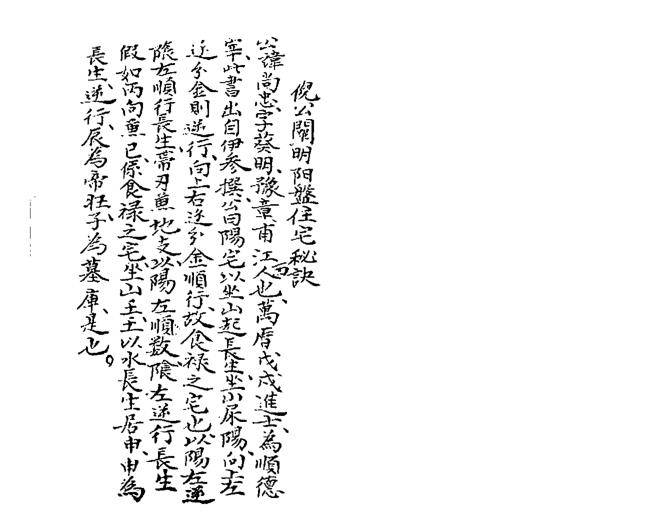 倪公闢明阳盤住宅秘訣
公諱尚忠字葵明豫章甫江西人也萬曆戊戌進士為順德
宰此書出自伊参撰公曰陽宅以坐山起長生坐山属陽向上左
逆分金則逆行向上右逆分金順行故食禄之宅也以陽左逆
陰左順行長生帶刃兼地支以陽左順数陰左逆行長生
假如丙向兼巳係食禄之宅坐山壬壬以水長生居申申為
長生逆行辰為帝旺子為墓庫是也。